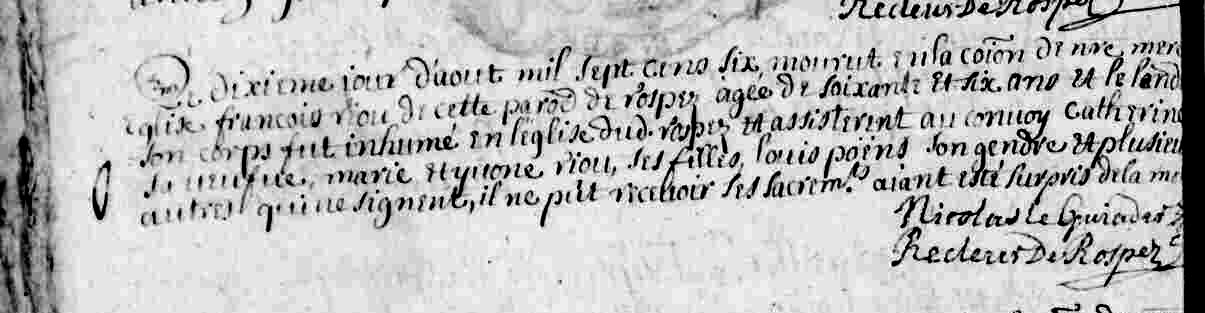 Recteur De Rospez
Le dixieme jour d'aout mil sept cens six, mourut en la coion de nre mere
eglise francois riou de cette parod de rospez agee de soixante et six ans et le lend
son corps fut inhumé en l'eglise dud. rospez et assisterent au convoy Catherine
sa veufve, marie et yvone riou, ses filles, louis poëns son gendre et plusieu
autres qui ne signent, il ne put recevoir les sacremts aiant esté surpris de la mo
Nicolas le Guiader
Recteur De Rospez